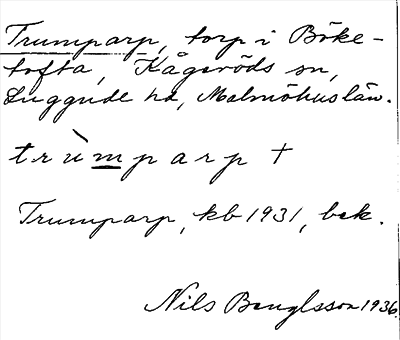 Trumparp, torp i Böke-
tofta, Kågeröds sn,
Luggude hd, Malmöhus län.
trùmparp †
Trumparp, kb 1931, bek.
Nils Bengtsson 1936.